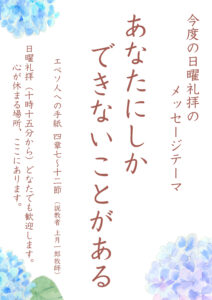 今度の日曜礼拝の
メッセージテーマ
あなたにしか
できないことがある
エペソ人への手紙 四章七~十二節 (説教者 上月一郎牧師)
日曜礼拝(十時十五分から)どなたでも歓迎します。
心が休まる場所、ここにあります。